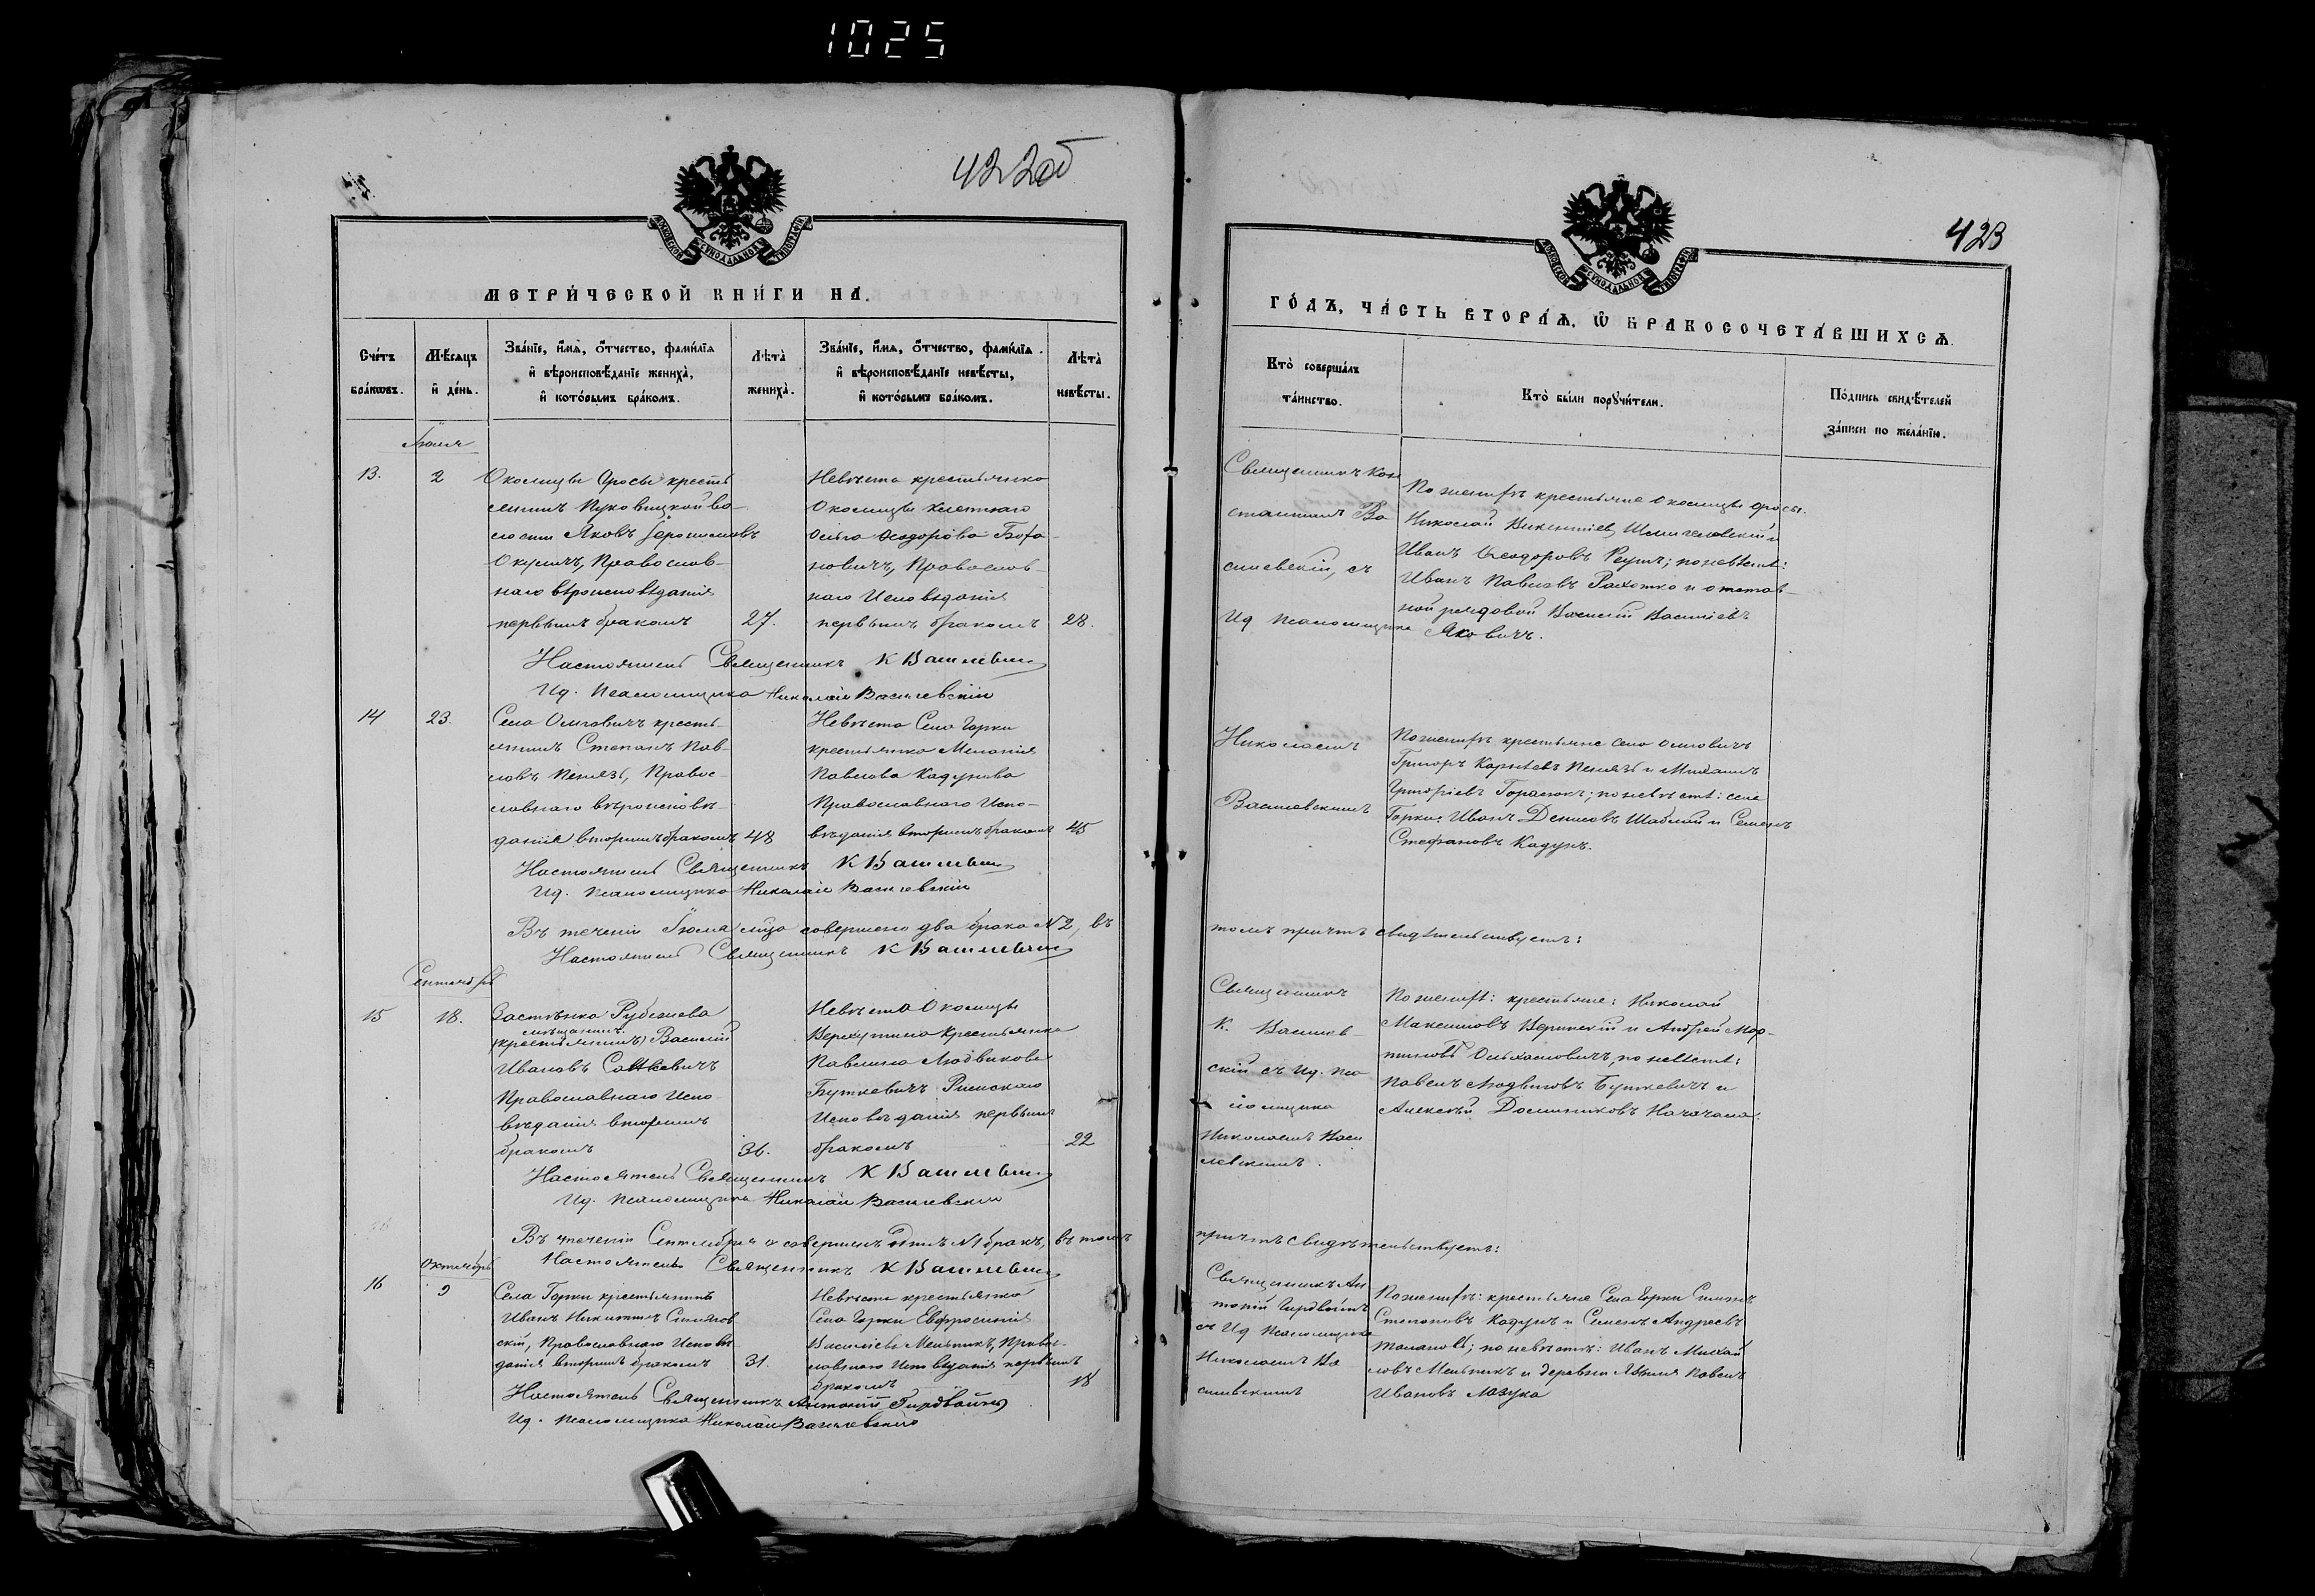 1025
422об
МОСКОВСКОЙ СѴНОДАЛЬНОЙ ТИПОГРАФІИ
МЕТРИ́ЧЕСКОЙ КНИ́ГИ НА.
Сче́тъ бра́ковъ.
Мѣ́сяцъ и҆ де́нь.
Зва́нїе, и҆́мѧ, ѻ҆́тчество, фами́лїѧ
и҆ вѣроисповѣ́данїе жениха̀,
и҆ кото́рымъ бра́комъ.
Лѣ́та̀ жениха̀.
Зва́нїе, и҆́мѧ, ѻ҆́тчество, фами́лїѧ.
и҆ вѣроисповѣ́данїе невѣ́сты,
и҆ кото́рымъ бра́комъ.
Лѣ́та̀ невѣ́сты.
13.
2
Околицы Фросы кресть
янинъ Пуховицкой во-
лости Яковъ
Окуличъ, Православ-
наго вѣроисповѣданія
первымъ бракомъ
27.
Невѣста крестьянка
Околицы
Ольга Ѳеодорова Бога
новичъ, Православ-
наго Исповѣданія
первымъ бракомъ
28.
Настоятель Священникъ К Василевскій
Ид. Псаломщика Николай Василевскій
14
23.
Села Омговичъ кресть-
янинъ Степанъ Пав-
ловъ Пенязь, Правос-
лавнаго вѣроисповѣ-
данія вторымъ бракомъ
48
Невѣста Села Горки
крестьянка Меланія
Павлова Кадунова
Православнаго Испо-
вѣданія вторымъ бракомъ
45
Настоятель Священникъ К Василевскій
Ид. Псаломщика Николай Василевскій
Въ теченіи Іюля м-ца совершено два брака N 2, въ
Настоятель Священникъ К Василевскій
Сентябрь
15
18.
Застѣнка Рубежова
мѣщанинъ
(крестьянинъ) Василій
Ивановъ
Православнаго Испо
вѣданія вторымъ
бракомъ
36.
Невѣста Околицы
крестьянка
Павлина Людвикова
Буткевичъ Римскаго
Исповѣданія первымъ
бракомъ
22
Настоятель Священникъ К Василевскій
Ид. Псаломщика Николай Василевскій
Въ теченіи Сентября совершенъ одинъ N 1 бракъ, въ томъ
Настоятель Священникъ К Василевскій
Октябрь
16
9
Села Горки крестьянинъ
Иванъ Никитинъ
скій, Православнаго Исповѣ
данія вторымъ бракомъ
31.
Невѣста крестьянка
Села Горки Евфросинія
Василіева Мельникъ, Право-
славнаго Исповѣданія первымъ
бракомъ
18
Настоятель Священникъ Антоній Гирдвойнъ
Ид. Псаломщика Николай Василевскій
423
МОСКОВСКОЙ СѴНОДАЛЬНОЙ ТИПОГРАФІИ
ГО́ДЪ, ЧА́СТЬ ВТОРА́Ѧ, Ѽ БРАКОСОЧЕТА́ВШИХСѦ.
Кто̀ соверша́лъ та́инство.
Кто̀ бы́ли порꙋчи́тели.
По́дпись свидѣ́телей за́писи по жела́нїю.
Священникъ Кон
стантинъ Ва
силевскій, съ
Ид Псаломщика
По женихѣ крестьяне околицы Фросы:
Николай Викентіевъ и
Иванъ Ѳеодоровъ Реутъ; по невѣстѣ:
Иванъ Павловъ и отстав-
ной рядовой Василій Василіевъ
Яковичъ.
Николаемъ
Василевскимъ
По женихѣ крестьяне села Омговичъ
Григоръ Пенязь и Михаилъ
Григоріевъ; по невѣстѣ: села
Горки, Иванъ Денисовъ и Семенъ
Стефановъ Кадунъ.
томъ причтъ свидѣтельствуетъ:
Священникъ
К. Василев-
скій съ Ид. Пса
ломщика
Николаемъ Васи
левскимъ.
По женихѣ: крестьяне: Николай
Максимовъ и Андрей Мар-
тиновъ, по невѣстѣ:
Павелъ Людвиковъ Буткевичъ и
Алексѣй Доминиковъ
причтъ свидѣтельствуетъ:
Священникъ Ан
тоній Гирдвойнъ
съ Ид Псаломщика
Николаемъ Ва
силевскимъ
По женихѣ: крестьяне Села Горки
Степановъ Кадунъ и Семенъ Андреевъ
по невѣстѣ: Иванъ Михай
ловъ Мельникъ и деревни Павелъ
Ивановъ Лазука